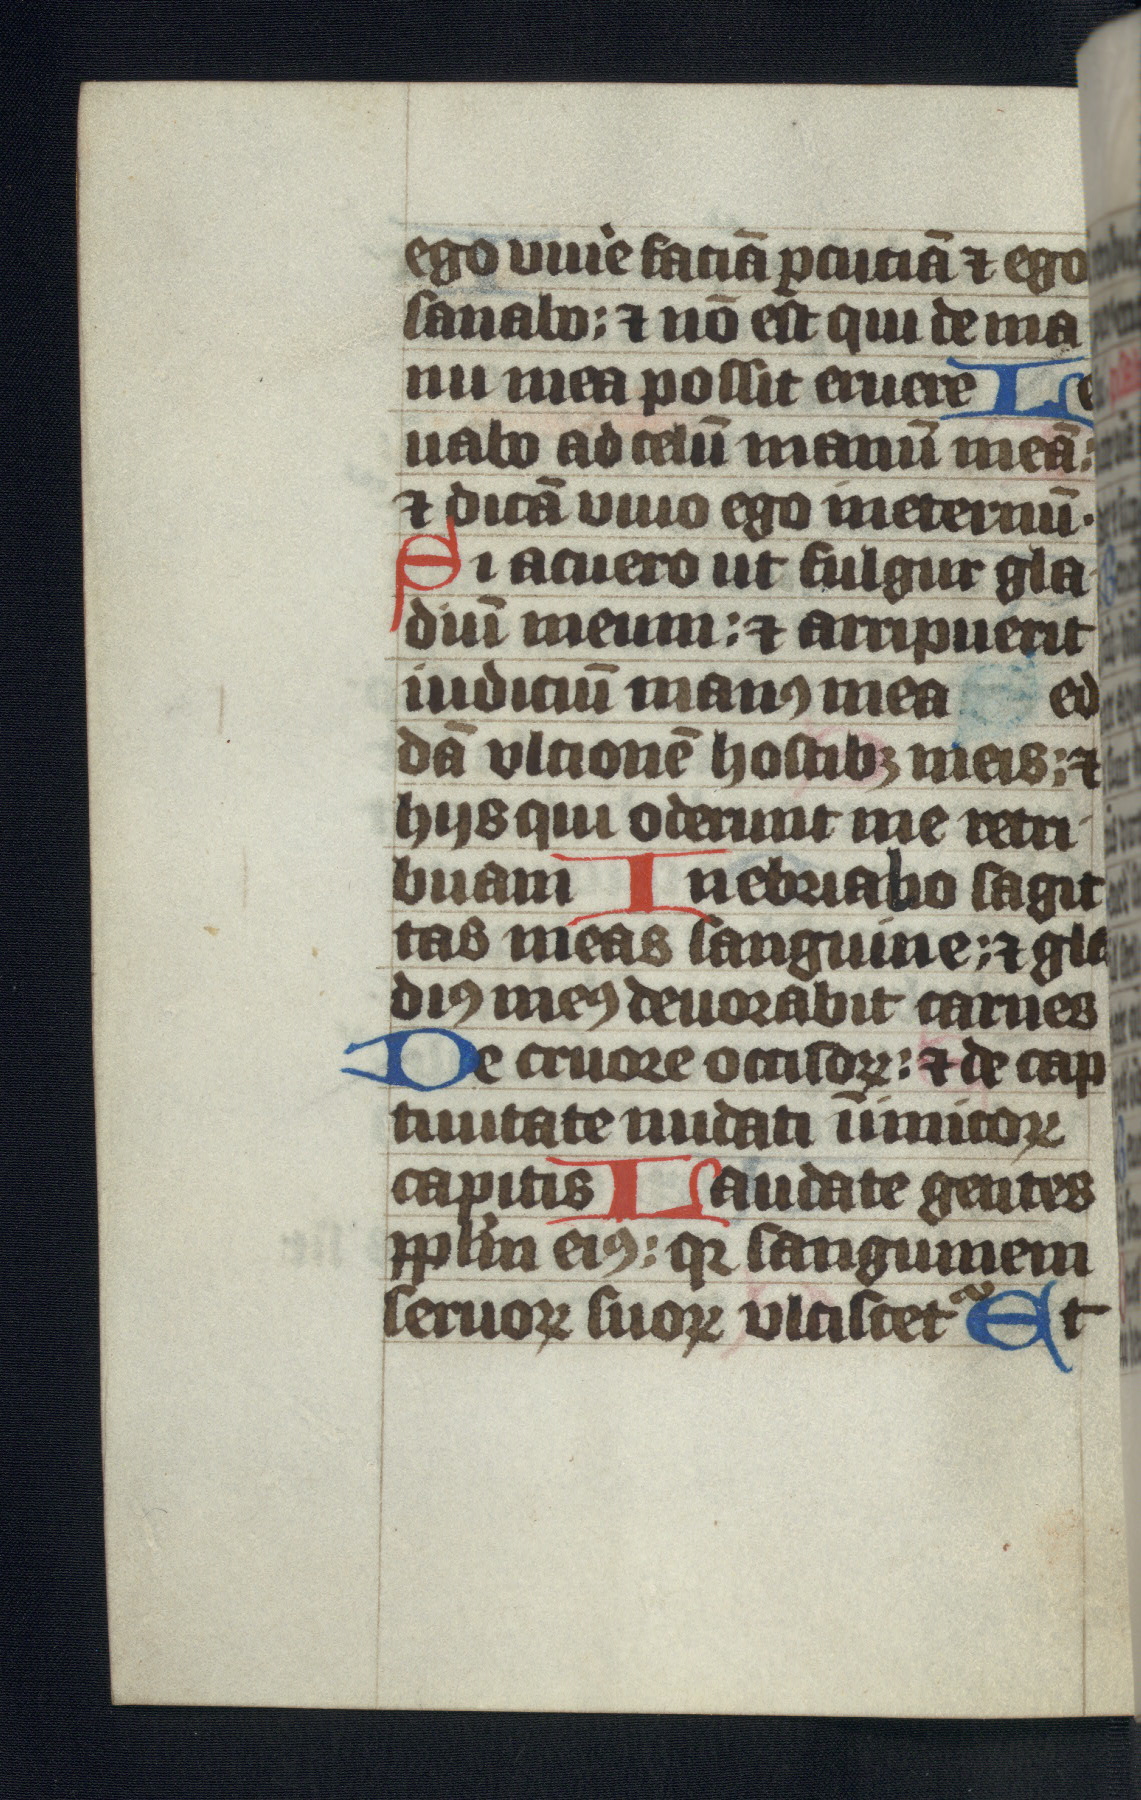 ego viuĕ faciā ꝑcuciā ⁊ ego
sanabo: ⁊ nō est qui de ma
nu mea possit eruere Le
uabo ad celū manū meā:
⁊ dicā viuo ego ineternū.
Si acuero ut fulgur gla
diū meum: ⁊ arripuerit
iudiciū manꝰ mea ed
dā vlcionē hostibꝫ meis: ⁊
hijs qui oderunt me retri
buam Inebriabo sagit
tas meas sanguine: ⁊ gla
diꝰ meꝰ deuorabit carnes
De cruore occisoꝝ: ⁊ de cap
tiuitate nudati īimicoꝝ
capitis Laudate gentes
pplm eiꝰ: qꝛ sanguinem
seruoꝝ suoꝝ vlciscet᷑ Et